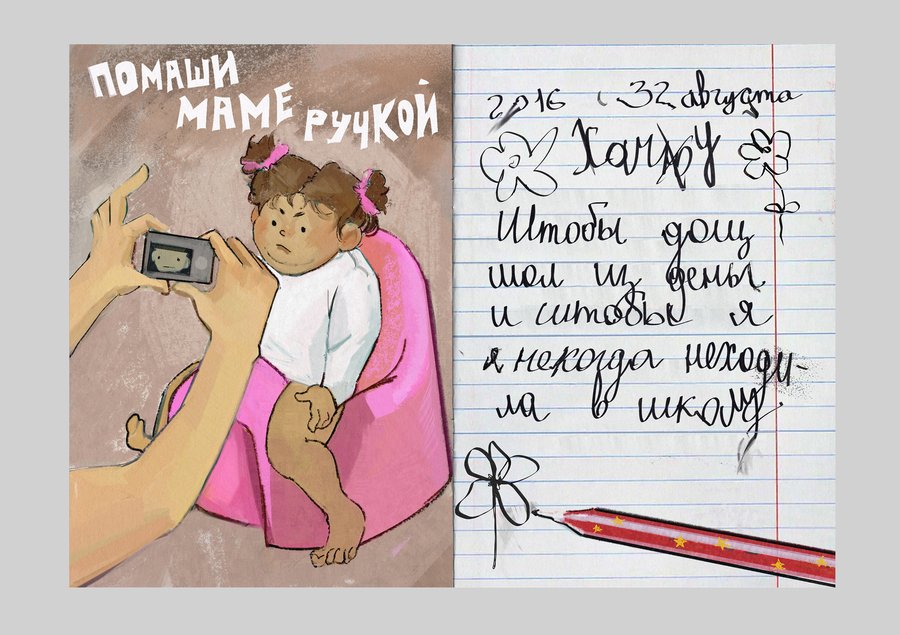 ПОМАШИ
МАМЕ
РУЧКОЙ
2016 32 августа
Хачу
Штобы дощ
шол из
и штобы я
я некогда неходи-
ла в школу